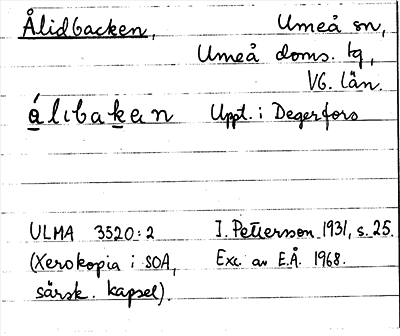 Ålidbacken, Umeå sn,
Umeå doms. tg,
VG. län.
á̱libak̲en Uppt. i Degerfors
ULMA 3520:2 I. Pettersson 1931, s. 25.
(Xerokopia i SOA, Exc. av E.Å. 1968.
särsk. kapsel).